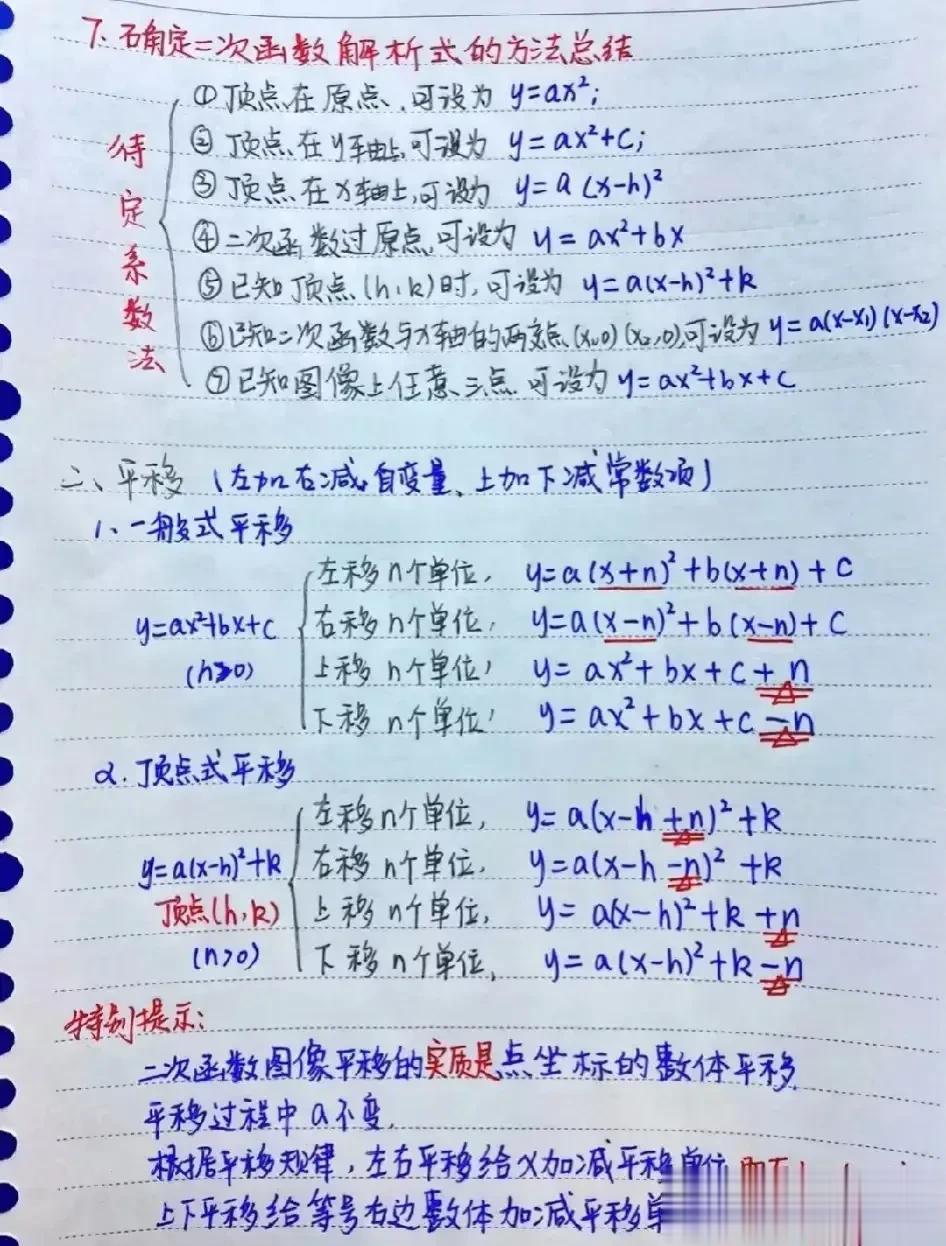 7. 确定二次函数解析式的方法总结
待定系数法
①顶点在原点,可设为 y=ax²;
②顶点在y轴上,可设为 y=ax²+c;
③顶点在x轴上,可设为 y=a(x-h)²
④二次函数过原点,可设为 y=ax²+bx
⑤已知顶点(h,k)时,可设为 y=a(x-h)²+k
⑥已知二次函数与x轴的两交点(x₁,0)(x₂,0),可设为 y=a(x-x₁)(x-x₂)
⑦已知图像上任意三点 可设为 y=ax²+bx+c
二、平移(左加右减自变量、上加下减常数项)
1、一般式平移
y=ax²+bx+c
(n>0)
左移n个单位, y=a(x+n)²+b(x+n)+c
右移n个单位, y=a(x-n)²+b(x-n)+c
上移n个单位, y=ax²+bx+c+n
下移n个单位, y=ax²+bx+c-n
2.顶点式平移
y=a(x-h)²+k
顶点(h,k)
(n>0)
左移n个单位, y=a(x-h+n)²+k
右移n个单位, y=a(x-h-n)²+k
上移n个单位, y=a(x-h)²+k+n
下移n个单位, y=a(x-h)²+k-n
特别提示:
二次函数图像平移的实质是点坐标的整体平移
平移过程中a不变,
根据平移规律,左右平移给x加减平移单位
上下平移给等号右边整体加减平移单